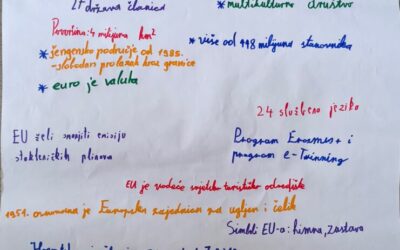 27 država članica
* multikulturno društvo
Površina: 4 milijuna km²
* šengensko područje od 1985.
-slobodan prolazak kroz granice
* više od 448 milijuna stanovnika
* euro je valuta
24 službena jezika
EU želi smanjiti emisiju
stakleničkih plinova
Program Erasmus+ i
program e-Twinning
EU je vodeće svjetsko turističko odredište
1951. osnovana je Europska zajednica za ugljen i čelik
Simboli EU-a: himna, zastava